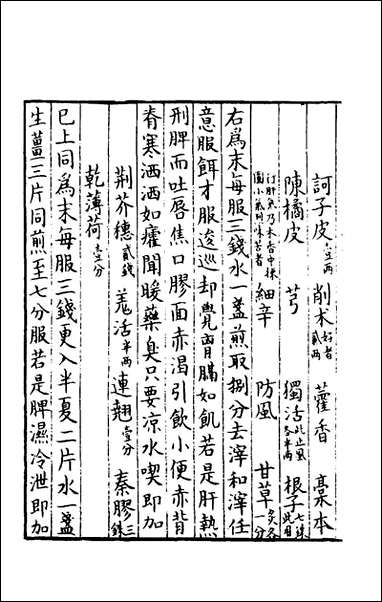 訶子皮壹两 削术好者貳两 藿香 藁本
陳橘皮 芎 獨活此止風各半两 根子七錢此用
訂肝気乃木香中揀圓小系列味苦者 細辛 防風 甘草炙各一分
右爲末每服三錢水一盞煎取捌分去滓和滓任
意服餌才服逡巡却覺胷膈如飢若是肝熱
刑脾而吐唇焦口膠面赤渴引飲小便赤背
脊寒洒洒如瘧聞暖藥臭只要凉水喫即加
荆芥穗貳錢 羌活半两 連翹壹分 秦膠三錢
乾薄荷壹分
巳上同爲末每服三錢更入半夏二片水一盞
生薑三片同煎至七分服若是脾濕冷泄即加